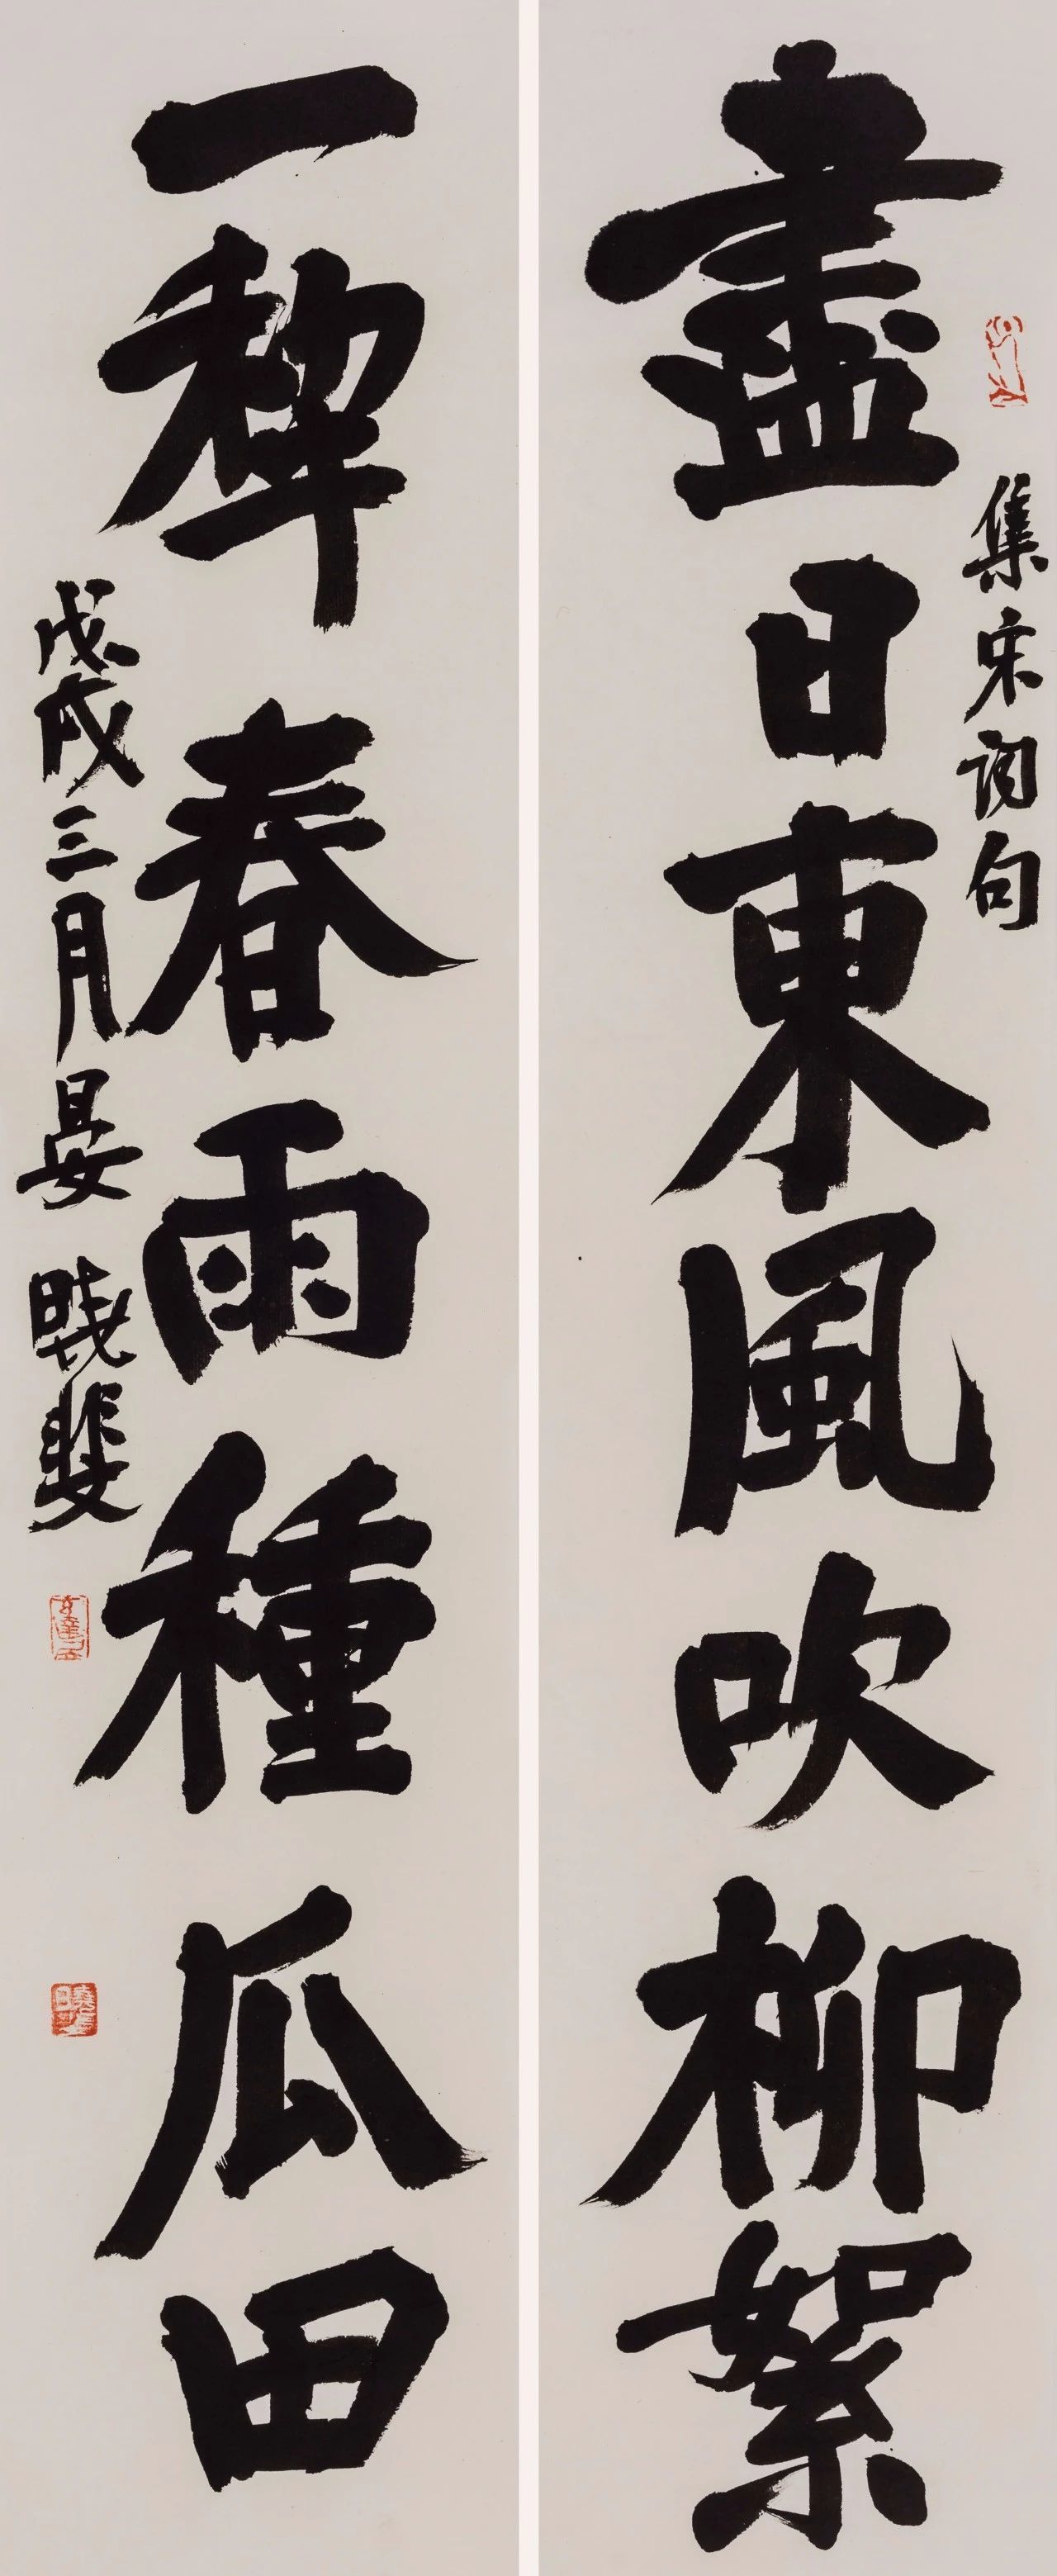 集宋词句
盡日東風吹柳絮
一犂春雨種瓜田
戊戌三月晏曉斐